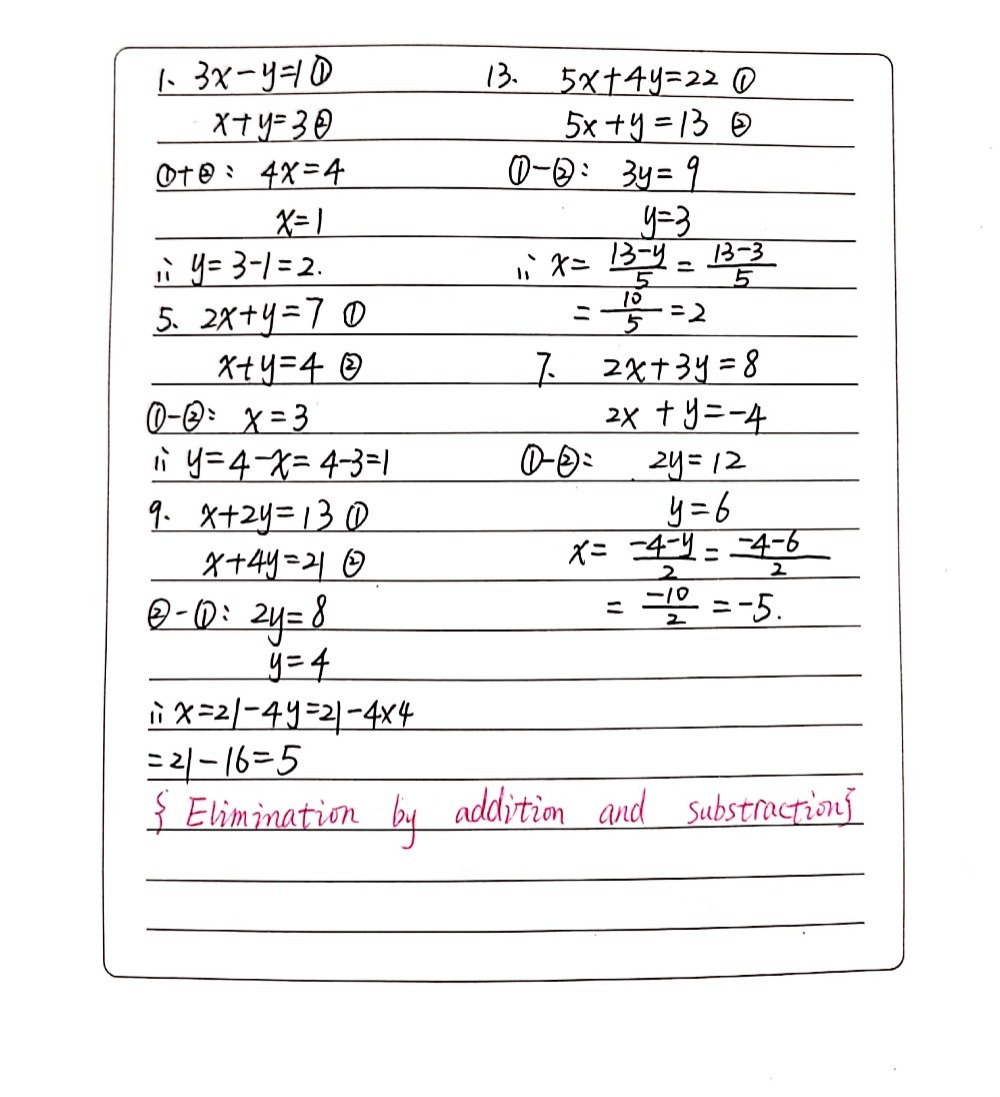 1、 3x-y=1 ①
x+y=3 ②
①+②: 4x=4
x=1
ii y=3-1=2.
5、 2x+y=7 ①
x+y=4 ②
①-②: x=3
ii y=4-x=4-3=1
9. x+2y=13 ①
x+4y=21 ②
②-①: 2y=8
y=4
ii x=21-4y=21-4x4
=21-16=5
13. 5x+4y=22 ①
5x+y=13 ②
①-②: 3y=9
y=3
ii x= (13-y)/5 = (13-3)/5
= 10/5 =2
7. 2x+3y=8
2x+y=-4
①-②: 2y=12
y=6
x= (-4-y)/2 = (-4-6)/2
= -10/2 =-5.
{ Elimination by addition and substraction}